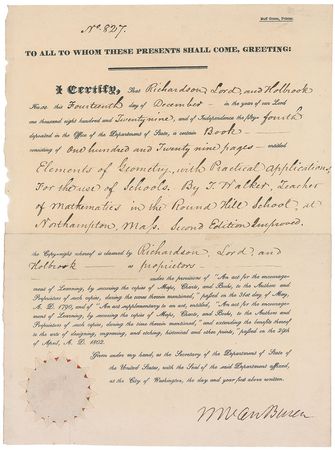 No. 827.
Duff Green, Printer.
TO ALL TO WHOM THESE PRESENTS SHALL COME, GREETING:
I Certify, That Richardson, Lord, and Holbrook
the Fourteenth day of December in the year of our Lord
one thousand eight hundred and Twenty nine, and of Independence the fifty fourth
deposited in the Office of the Department of State, a certain Book
consisting of One hundred and Twenty nine pages entitled
Elements of Geometry, with Practical Applications,
For the use of Schools. By T. Walker, Teacher
of Mathematics in the Round Hill School, at
Northampton, Mass. Second Edition Improved.
the Copy-right whereof is claimed by Richardson, Lord, and
Holbrook as proprietors
under the provisions of "An act for the encourage-
ment of Learning, by securing the copies of Maps, Charts, and Books, to the Authors and
Proprietors of such copies, during the times therein mentioned," passed on the 31st day of May,
A. D. 1790, and of "An act supplementary to an act, entitled, "An act for the encourage-
ment of Learning, by securing the copies of Maps, Charts, and Books, to the Authors and
Proprietors of such copies, during the times therein mentioned," and extending the benefits thereof
to the arts of designing, engraving, and etching, historical and other prints," passed on the 29th
of April, A. D. 1802.
Given under my hand, as the Secretary of the Department of State of
the United States, with the Seal of the said Department affixed,
at the City of Washington, the day and year first above written.
M. Van Buren